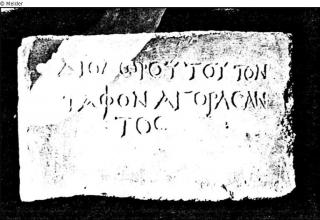 © Melder
ΔΙΟΔΩΡΟΥ ΤΟΥ ΤΟΝ
ΤΑΦΟΝ ΑΓΟΡΑΣΑΝ
ΤΟΣ